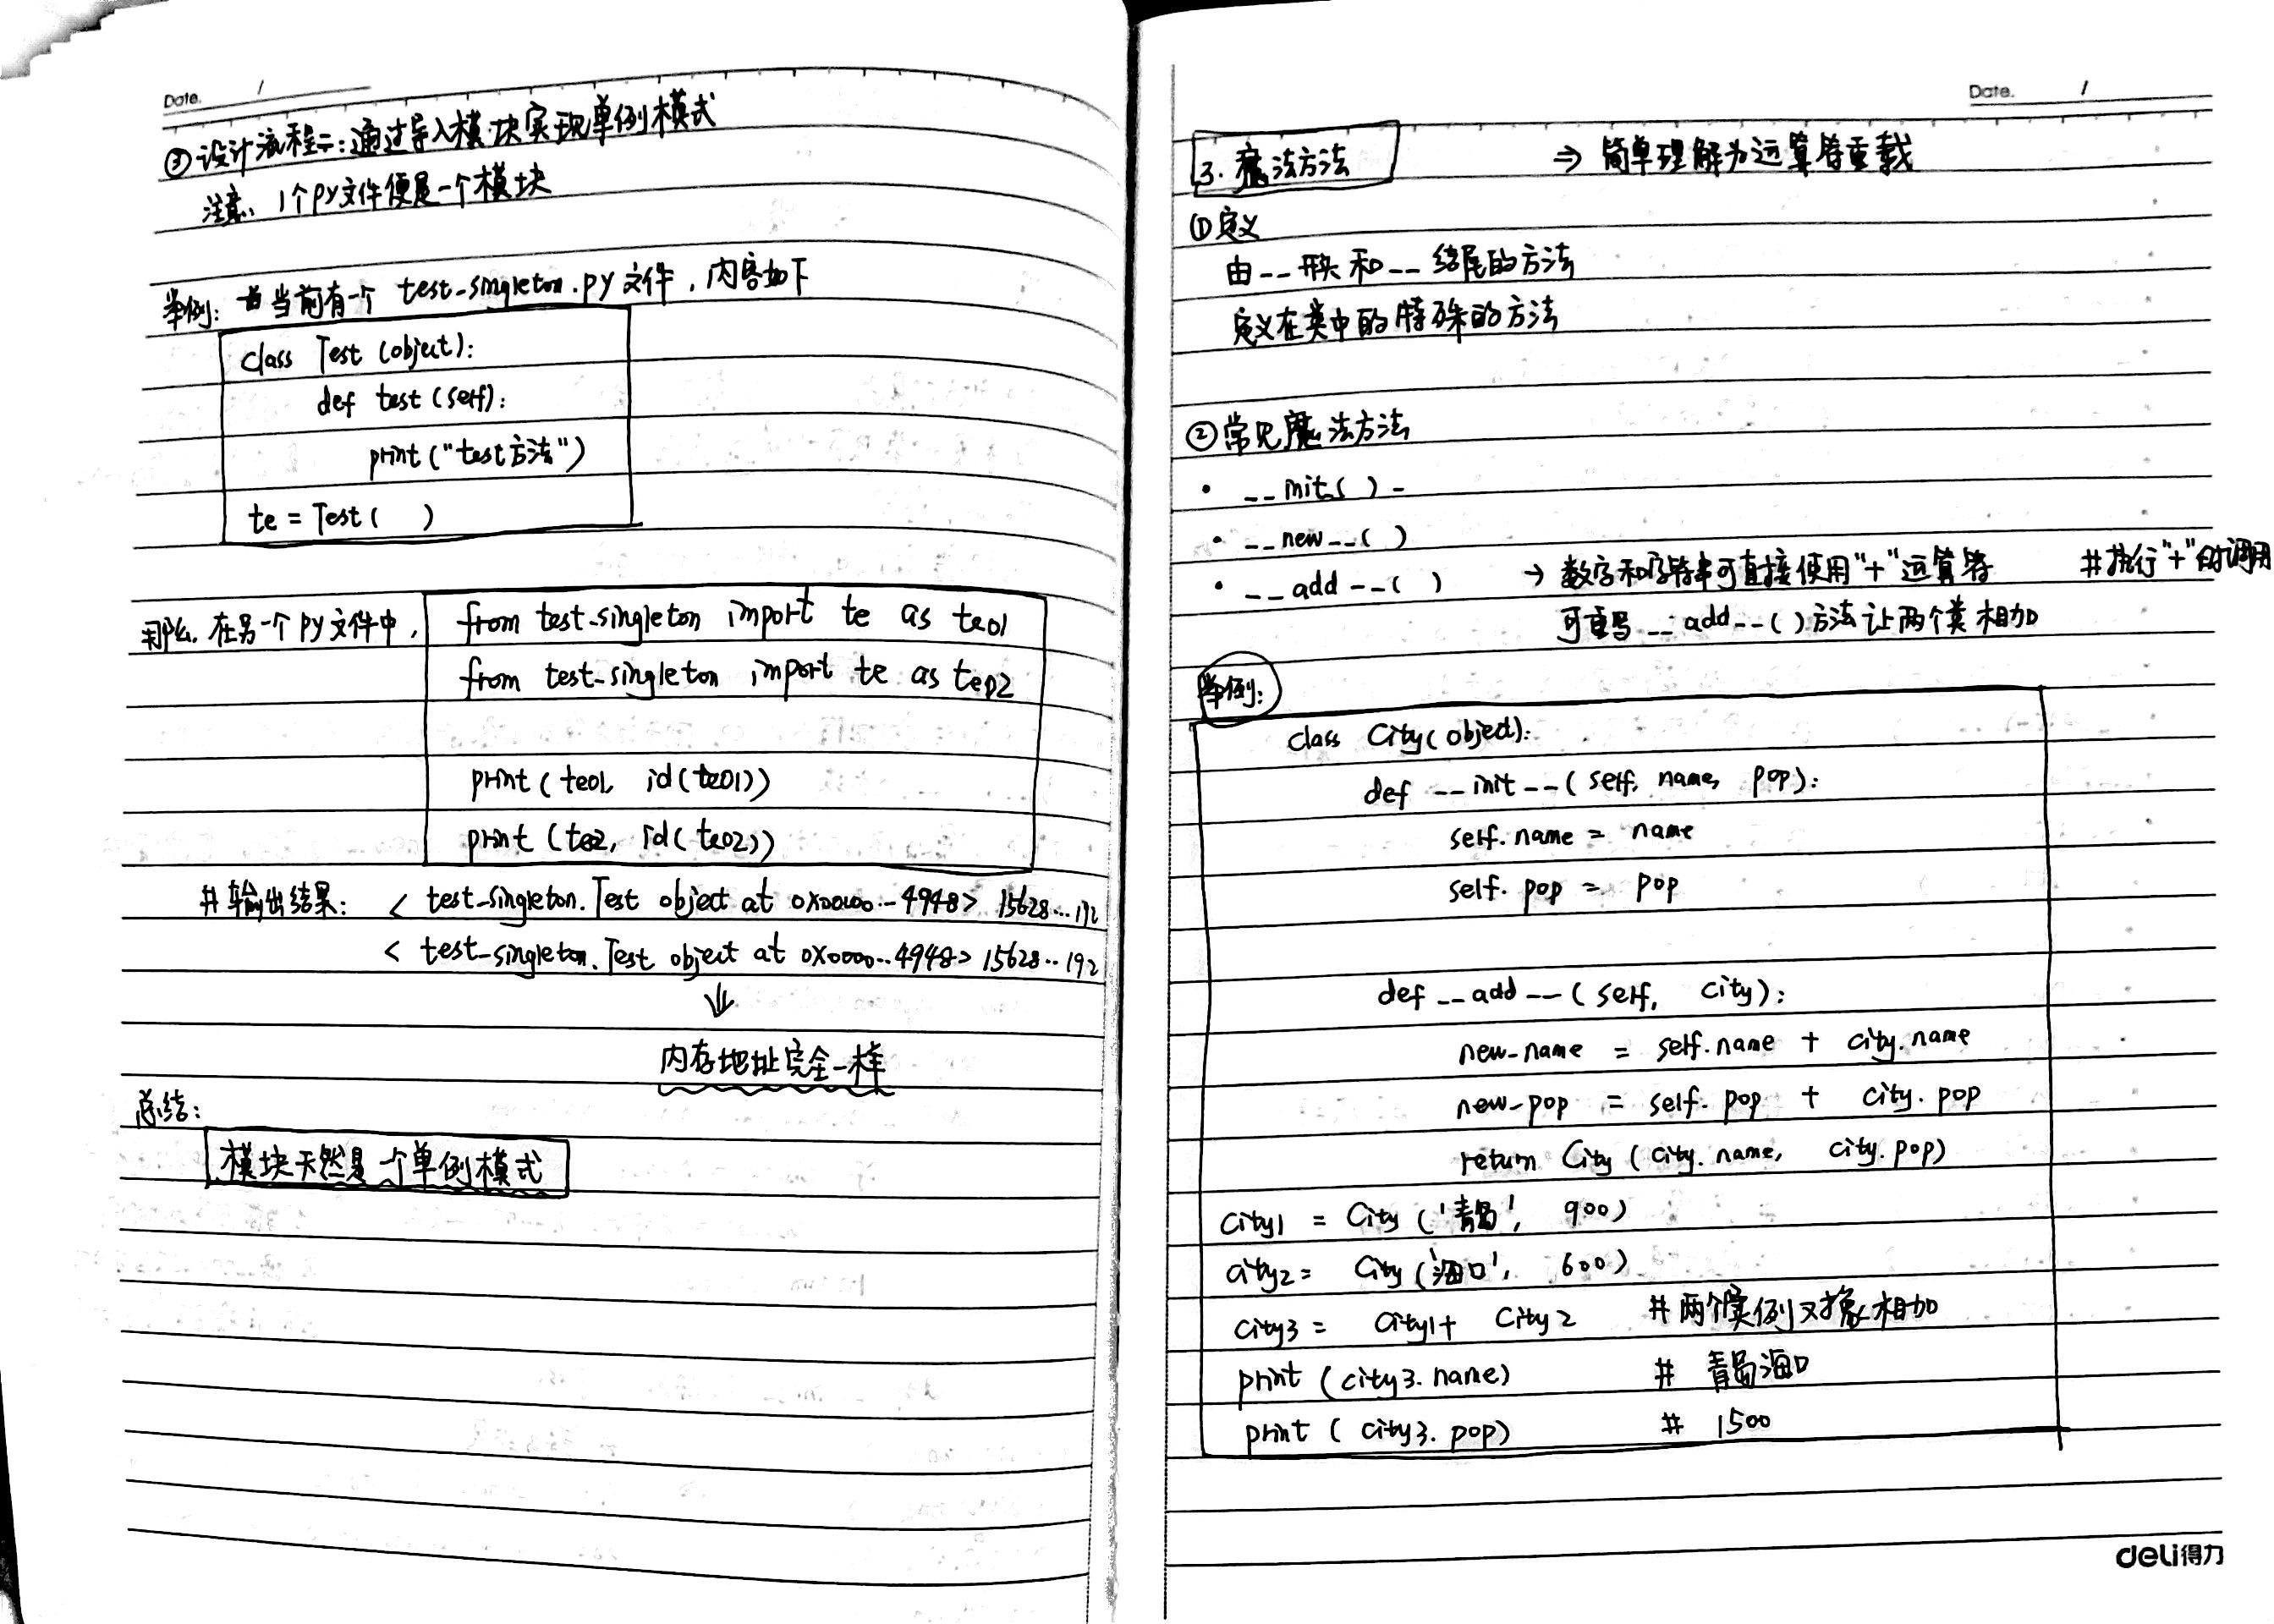 Date. /
③设计流程二:通过导入模块实现单例模式
注意、1个py文件便是一个模块
举例: 当前有一个 test-singleton.py 文件,内容如下
class Test (object):
def test (self):
print ("test方法")
te = Test ( )
那么,在另一个py文件中,
from test-singleton import te as te01
from test-singleton import te as te02
print ( te01, id(te01))
print (te2, id( te02))
# 输出结果: < test-singleton.Test object at 0x00000…4948> 15628…192
< test-singleton.Test object at 0x0000…4948> 15628…192
⇓
内存地址完全一样
总结:
模块天然是一个单例模式
Date. /
3. 魔法方法 ⇒ 简单理解为运算符重载
①定义
由__开头 和 __ 结尾的方法
定义在类中的特殊的方法
②常见魔法方法
• __init_( ) -
• __new__( )
• __add__( ) → 数字和字符串可直接使用"+"运算符 #执行"+"时调用
可重写 __add__( )方法让两个类相加
举例:
class City( object):
def __init__( self, name, pop):
self.name = name
self.pop = pop
def __add__ ( self, city):
new-name = self.name + city.name
new-pop = self.pop + city.pop
return City ( city.name, city.pop)
city1 = City ('青岛', 900)
city2 = City ('海口', 600)
city3 = city1+ city2 # 两个实例对象相加
print (city3.name) # 青岛海口
print ( city3.pop) # 1500
deli得力